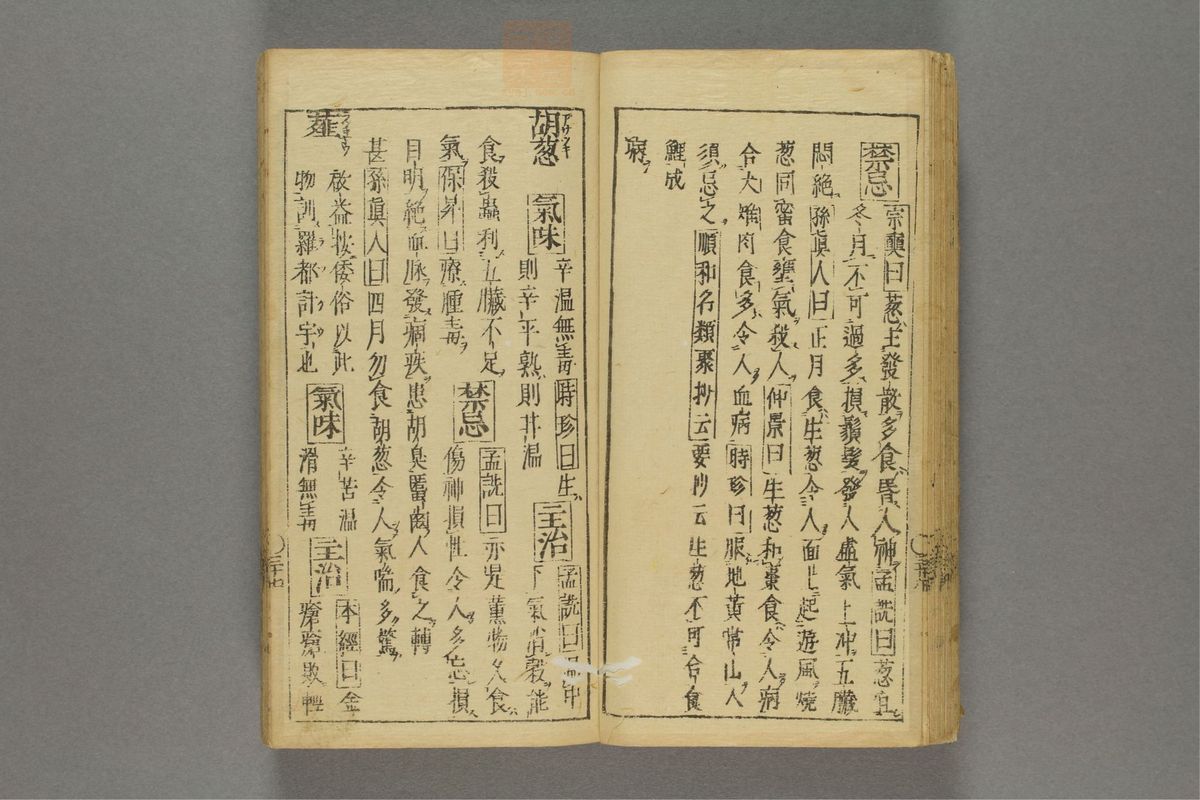 禁忌
宗奭曰葱主發散多食昏人神孟詵曰葱宜
冬月不可過多損鬚髮發人虛氣上冲五臟
悶絶孫眞人曰正月食生葱令人面上起遊風燒
葱同蜜食壅氣殺人仲景曰生葱和棗食令人病
合犬雉肉食多令人血病時珍曰服地黄常山人
須忌之順和名類聚抄云要抄云生葱不可合食
鯉成
病
胡葱
アサツキ
氣味
辛温無毒時珍曰生
則辛平熟則甘温
主治
孟詵曰温中
下氣消穀能
食殺蟲利五臟不足
氣保昇曰療腫毒
禁忌
孟詵曰亦是薰物久食
傷神損性令人多忘損
目明絶血脉發痼疾患胡臭䘌齒人食之轉
甚孫眞人曰四月勿食胡葱令人氣喘多驚
薤
啟益按倭俗以此
物訓羅都計宇也
氣味
辛苦温
滑無毒
主治
本經曰金
瘡瘡敗輕